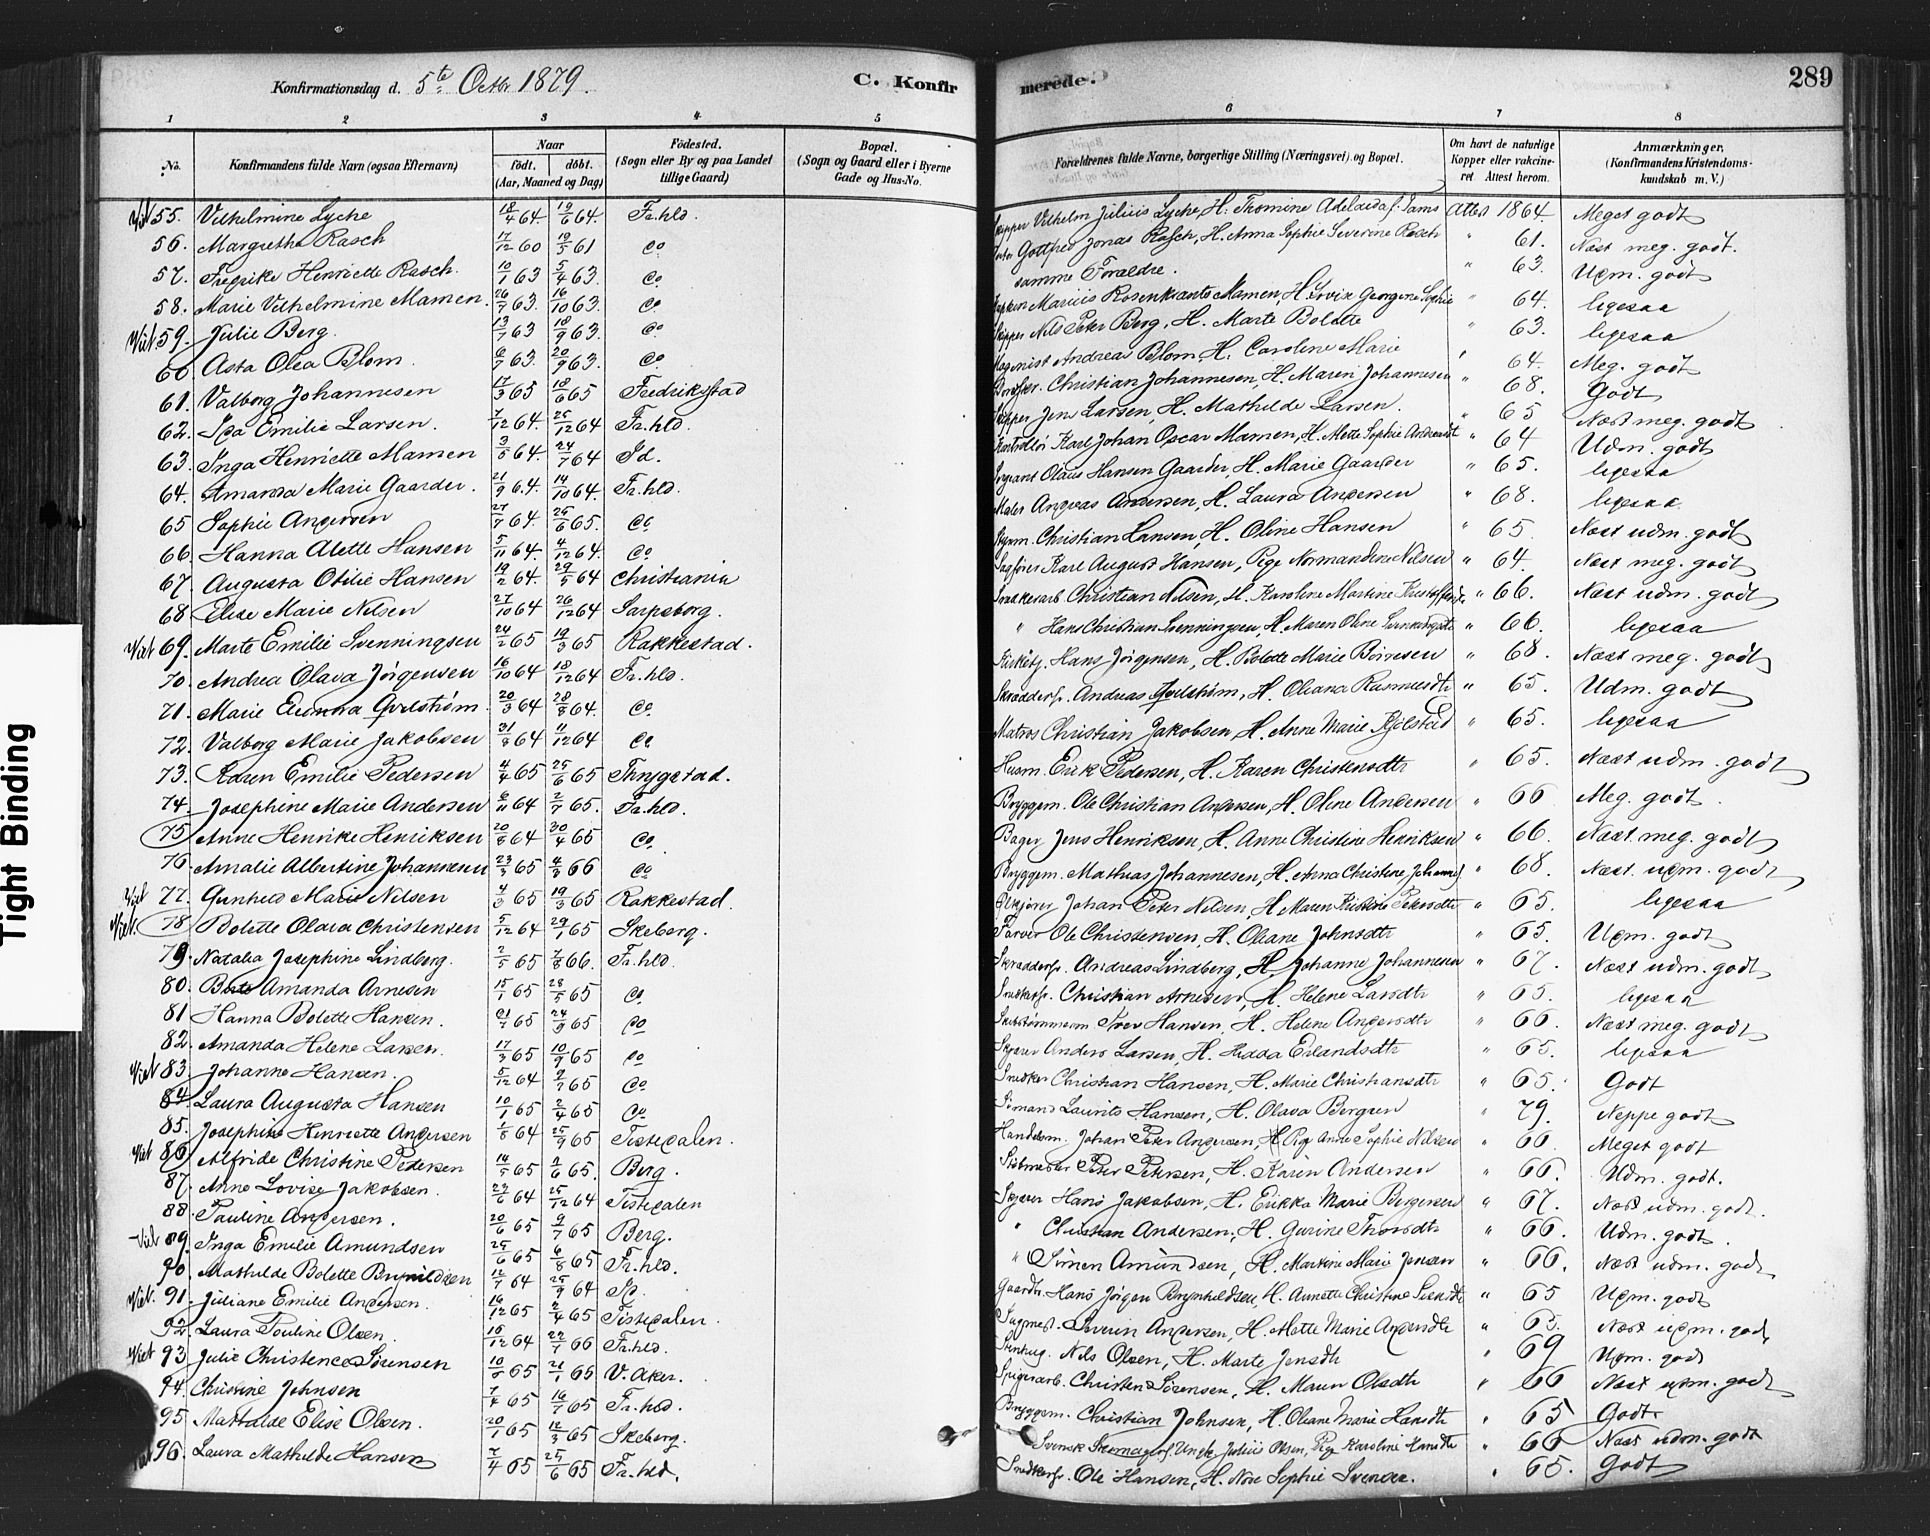 Konfirmationsdag d. 5te Octbr 1879.
C. Konfirmerede.
289
1 2 3 4 5 6 7 8
No.
Konfirmandens fulde Navn (ogsaa Efternavn)
Naar
födt. döbt.
(Aar, Maaned og Dag)
Födested.
(Sogn eller By og paa Landet tillige Gaard)
Bopæl.
(Sogn og Gaard eller i Byerne Gade og Hus-No.
Forældrenes fulde Navne, borgerlige Stilling (Næringsvei) og Bopæl.
Om havt de naturlige Kopper eller vakcineret Attest herom.
Anmærkninger,
(Konfirmandens Kristendomskundskab m. V.)
55. Vilhelmine Lyche 18/4 64 19/6 64. Fr.hld. Vilhelm Julius Lyche, H. Thomine Attest 1864. Meget godt
56. Margrethe Rasch 17/12 60 19/5 61 do Gottfred Jonas Rasch, H. Anna Sophie Severine Rasch " 61. Næst meg. godt.
57. Fredrike Henriette Rasch. 10/1 63 5/4 63. do samme Forældre. " 63. Udm. godt
58. Marie Vilhelmine Mamen. 26/7 63. 16/10 63. do Marius Rosenkrants Mamen, H. Lovise Georgine Sophie " 64. ligesaa
59. Julie Berg. 13/7 63 18/9 63. do Skipper Nils Peter Berg, H. Marte Bolette " 63. ligesaa
60 Asta Olea Blom. 6/7 63. 20/9 63. do Andreas Blom, H. Caroline Marie " 64. Meg. godt
61. Valborg Johannesen 17/3 65 18/6 65 Fredrikstad Christian Johannesen, H. Maren Johannesen " 68. Godt
62. Ida Emilie Larsen. 7/12 64. 25/12 64 Fr.hld. Skipper Jens Larsen, H. Mathilde Larsen. " 65 Næst meg. godt
63. Inga Henriette Mamen 3/5 64. 24/7 64 Id. Karl Johan Oscar Mamen, H. Mette Sophie " 64 Udm. godt
64. Amanda Marie Gaarder. 21/9 64. 14/10 64. Fr.hld. Sergeant Olaus Hansen Gaarder, H. Marie Gaarder " 65. ligesaa
65 Sophie Andersen 27/7 64. 25/6 65. do Maler Andreas Andersen, H. Laura Andersen " 68. ligesaa
66. Hanna Alette Hansen 5/11 64. 4/12 64. do Christian Hansen, H. Oline Hansen " 65 Næst udm. godt
67. Augusta Otilie Hansen 19/2 64. 29/5 64 Christiania Sagfører Karl August Hansen, Pige Normandine Nilsen " 64. Næst meg. godt
68 Elise Marie Nilsen 27/10 64 26/12 64 Sarpsborg. Christian Nilsen, H. Karoline Martine " 66. Næst udm. godt
Viet 69. Marte Emilie Svenningsen 24/2 65 19/3 65 Rakkestad. " Hans Christian Svenningsen, H. Maren Oline " 66. ligesaa
70. Andrea Olava Jørgensen 16/10 64 18/12 64 Fr.hld. Hans Jørgensen, H. Bolette Marie " 68. Næst meg. godt
71. Marie 20/3 64 28/8 64. do Skræddersv. Andreas H. Oleana Rasmusdtr " 65. Udm. godt
72. Valborg Marie Jakobsen 31/8 64 11/12 64 do Matros Christian Jakobsen, H. Anne Marie Kjölstad " 65. ligesaa
73. Karen Emilie Pedersen 4/4 65 25/6 65 Thrygstad. Husm. Erik Pedersen, H. Karen Christensdtr " 65. Næst udm. godt
74. Josephine Marie Andersen 6/11 64 2/7 65. Fr.hld. Bryggem. Ole Christian Andersen, H. Oline Andersen " 66 Meg. godt.
75. Anne Henrike Henriksen 20/8 64 30/4 65 do Bager Jens Henriksen, H. Anne Christine Henriksen " 66. Næst meg. godt
76. Amalie Albertine Johannesen 23/3 65 4/3 66 do Bryggem. Mathias Johannesen, H. Anna Christine " 68. Næst. udm. godt
Viet 77. Gunhild Marie Nilsen 4/3 65 19/3 65 Rakkestad. Johan Peter Nilsen, H. Maren Kristine Pedersdtr " 65. ligesaa
Viet. 78. Bolette Olava Christensen 5/12 64 29/1 65 Skeberg. Farver Ole Christensen, H. Oleane Johnsdtr " 65. Udm. godt
79. Natalia Josephine Lindberg. 2/5 65 7/8 66. Fr.hld. Skræddersv. Andreas Lindberg, H. Johanne Johannesen " 67. Næst udm. godt
80. Berte Amanda Arnesen 15/1 65 28/5 65 do Snedkersv. Christian Arnesen, H. Helene Larsdtr " 65. ligesaa
81 Hanna Bolette Hansen. 21/7 65 24/9 65 do Skibstømmerm. Iver Hansen, H. Helene Andersdtr " 66. Næst meg. godt
82. Amanda Helene Larsen. 17/3 65 10/9 65 do Skjører Anders Larsen, H. Hedda Erlandsdtr " 65. ligesaa
Viet 83. Johanne Hansen. 5/12 64 9/7 65 do Snedker Christian Hansen, H. Marie Christiansdtr " 65. Godt
84. Laura Augusta Hansen 10/1 65 2/4 65 do Sømand Laurits Hansen, H. Olava Bergsen " 79. Neppe godt
85. Josephine Henriette Andersen 1/8 64 25/9 65 Tistedalen. Handelsm. Johan Peter Andersen, Pige Anne Sophie Nilsen " 66. Meget godt
Viet 86 Alfride Christine Pedersen 14/5 65 2/6 65. Berg. Peter Petersen, H. Karen Andersen " 66. Udm. godt.
87. Anne Lovise Jakobsen. 29/6 64 25/12 64 Tistedalen Hans Jakobsen, H. Erikka Marie Bergersen " 67. Næst udm. godt.
88. Pauline Andersen. 20/6 65 9/7 65 Berg. " Christian Andersen, H. Gurine Thorsdtr " 66. Udm. godt.
Viet 89. Inga Emilie Amundsen 25/6 65 6/8 65 Fr.hld. " Simen Amundsen, H. Martine Marie Jensen " 66. Næst udm. godt
90. Mathilde Bolette Brynildsen 12/7 64 25/9 64 Id. Gaardbr. Hans Jörgen Brynhildsen, H. Annette Christine " 65 Udm. godt
Viet. 91. Juliane Emilie Andersen. 16/12 65 2/4 65 Tistedalen. Severin Andersen, H. Mette Marie Andersdtr " 65. Næst udm. godt
92. Laura Pauline Olsen. 16/12 64 22/7 66 Fr.hld. Stenhug. Nils Olsen, H. Marte Jensdtr " 69 Udm. godt
Viet 93 Julie Christence Sørensen 65 21/1 65 V. Aker. Spigerarb. Christen Sörensen, H. Maren Olsdtr " 66 Næst udm. godt
94. Christine Johnsen 7/4 65 16/7 65 Fr.hld. Bryggem. Christian Johnsen, H. Oleane Marie Hansdtr " 65 Godt.
95 Mathilde Elise Olsen. 20/1 65 12/3 65 Skeberg. Svensk Ungk. Julius Olsen, Pige Karoline Hansdtr " 66 Næst udm. godt
96. Laura Mathilde Hansen 7/4 65 25/6 65 Fr.hld. Snedkersv. Ole Hansen, H. Sophie Svensen. " 65. Godt
Tight Binding